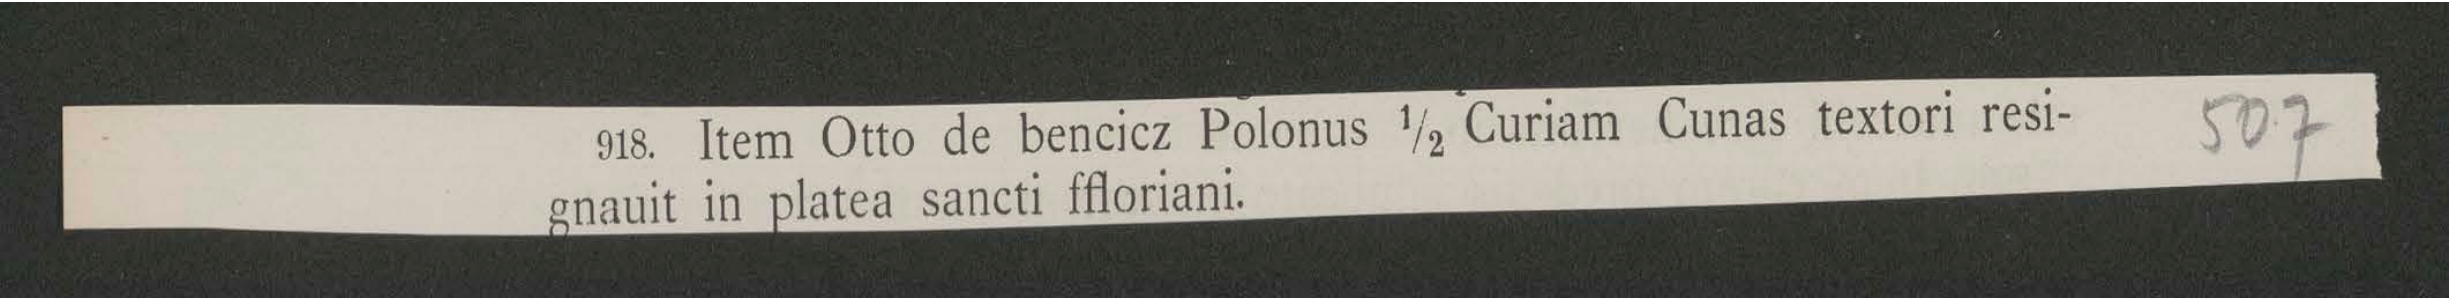 918. Item Otto de bencicz Polonus 1/2 Curiam Cunas textori resi- 507
gnauit in platea sancti ffloriani.